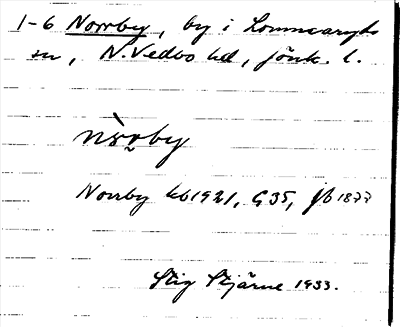 1-6 Norrby, by i Lommaryds
sn, N. Vedbo hd, Jönk. l.
nòrby
Norrby kb 1921, G 35, jb 1877
Stig Stjärne 1933.